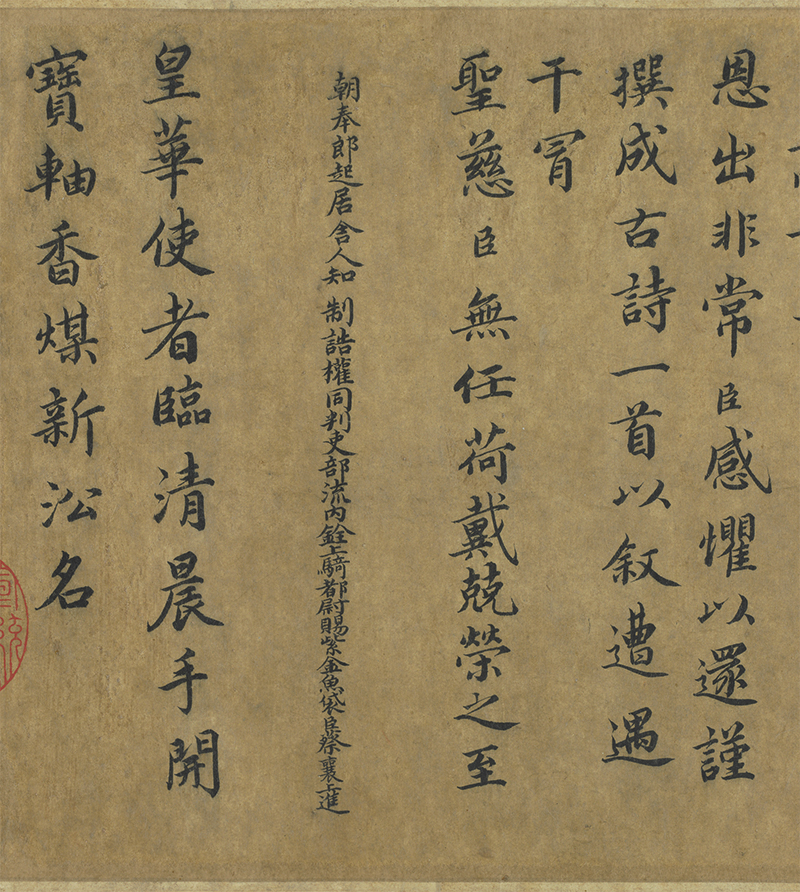 恩出非常臣感懼以還謹
撰成古詩一首以叙遭遇
干冒
聖慈臣無任荷戴兢榮之至
朝奉郎起居舍人知制誥權同判吏部流内銓上騎都尉賜紫金魚袋臣蔡襄上進
皇華使者臨清晨手開
寶軸香煤新沁名